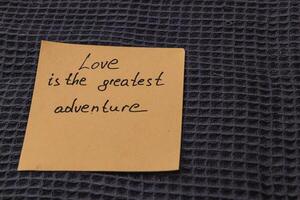 Love
is the greatest
adventure